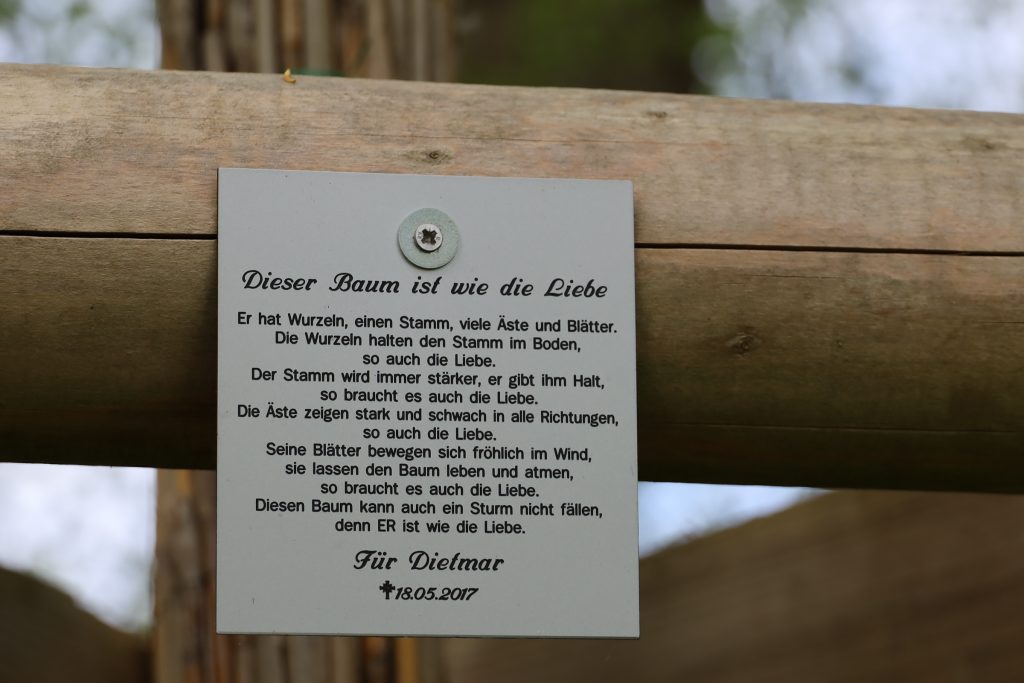 Dieser Baum ist wie die Liebe
Er hat Wurzeln, einen Stamm, viele Äste und Blätter.
Die Wurzeln halten den Stamm im Boden,
so auch die Liebe.
Der Stamm wird immer stärker, er gibt ihm Halt,
so braucht es auch die Liebe.
Die Äste zeigen stark und schwach in alle Richtungen,
so auch die Liebe.
Seine Blätter bewegen sich fröhlich im Wind,
sie lassen den Baum leben und atmen,
so braucht es auch die Liebe.
Diesen Baum kann auch ein Sturm nicht fällen,
denn ER ist wie die Liebe.
Für Dietmar
✝18.05.2017